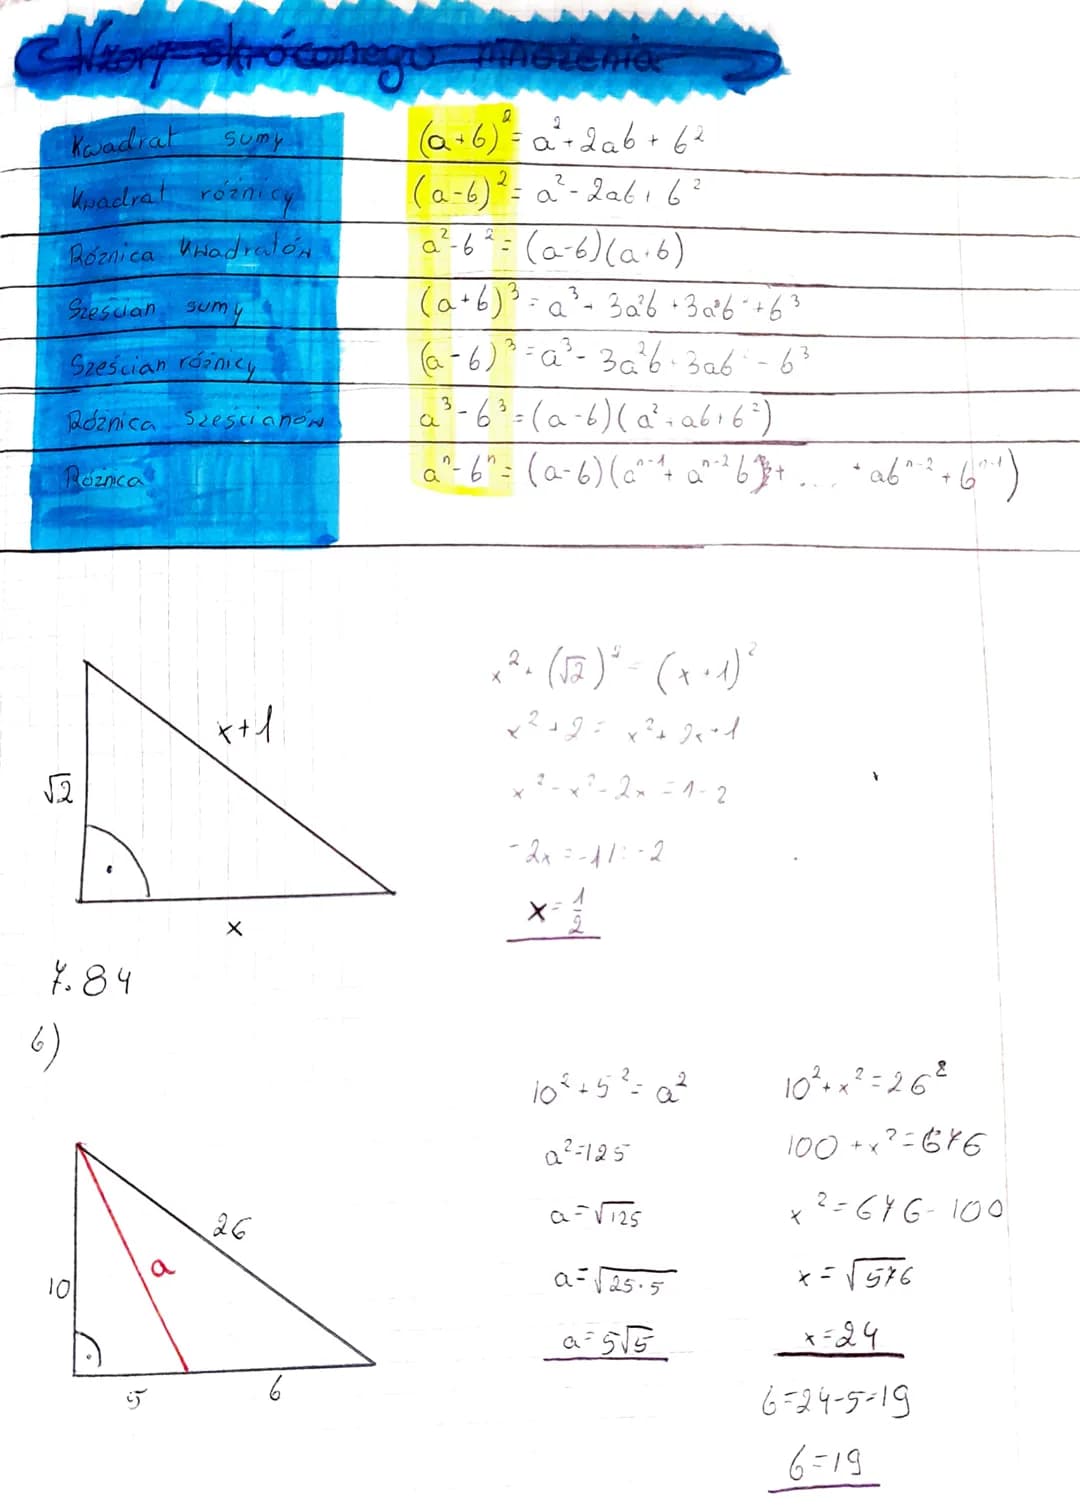 Wzory skróconego mnożenia
Kwadrat sumy (a+b)² = a² + 2ab + b²
Kwadrat różnicy (a-b)² = a² - 2ab + b²
Różnica kwadratów a² - b² = (a-b)(a+b)
Sześcian sumy (a+b)³ = a³ + 3a²b + 3ab² + b³
Sześcian różnicy (a-b)³ = a³ - 3a²b + 3ab² - b³
Różnica sześcianów a³ - b³ = (a-b)(a² + ab + b²)
Różnica aⁿ - bⁿ = (a-b)(aⁿ⁻¹ + aⁿ⁻²b + ... + abⁿ⁻² + bⁿ⁻¹)
x+1
√2
x
x² + (√2)² = (x+1)²
x² + 2 = x² + 2x + 1
x² - x² - 2x = 1 - 2
-2x = -1 /: -2
x = 1/2
7.84
b)
26
a
10
5
b
10² + 5² = a²
a² = 125
a = √125
a = √25·5
a = 5√5
10² + x² = 26²
100 + x² = 676
x² = 676 - 100
x = √576
x = 24
b = 24 - 5 = 19
b = 19